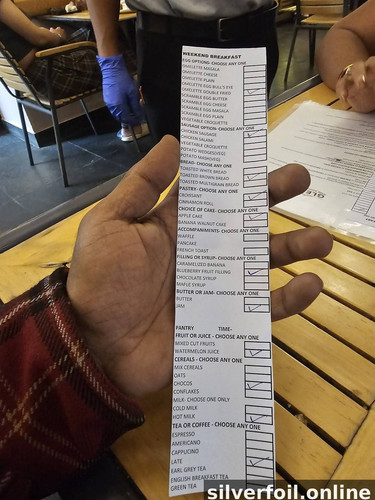 WEEKEND BREAKFAST
EGG OPTIONS- CHOOSE ANY ONE
OMELETTE MASALA
OMELETTE CHEESE
OMELETTE PLAIN
OMELETTE EGG BULL'S EYE
OMLETTE DOUBLE FRIED
SCRAMBLE EGG BUTTER
SCRAMBLE EGG CHEESE
SCRAMBLE EGG MASALA
SCRAMBLE EGG PLAIN
VEGETABLE CROQUETTE
SAUSAGE OPTION- CHOOSE ANY ONE
CHICKEN SAUSAGE
CHICKEN SALAMI
VEGETABLE CROQUETTE
POTATO WEDGES/VEG
POTATO MASH/VEG
BREAD- CHOOSE ANY ONE
TOASTED WHITE BREAD
TOASTED BROWN BREAD
TOASTED MULTIGRAIN BREAD
PASTRY- CHOOSE ANY ONE
CROISSANT
CINNAMON ROLL
CHOICE OF CAKE- CHOOSE ANY ONE
APPLE CAKE
BANANA WALNUT CAKE
ACCOMPANIMENTS- CHOOSE ANY ONE
WAFFLE
PANCAKE
FRENCH TOAST
FILLING OR SYRUP- CHOOSE ANY ONE
CARAMELIZED BANANA
BLUEBERRY FRUIT FILLING
CHOCOLATE SYRUP
MAPLE SYRUP
BUTTER OR JAM- CHOOSE ANY ONE
BUTTER
JAM
PANTRY TIME-
FRUIT OR JUICE - CHOOSE ANY ONE
MIXED CUT FRUITS
WATERMELON JUICE
CEREALS - CHOOSE ANY ONE
MIX CEREALS
OATS
CHOCOS
CONFLAKES
MILK- CHOOSE ONE ONLY
COLD MILK
HOT MILK
TEA OR COFFEE - CHOOSE ANY ONE
ESPRESSO
AMERICANO
CAPPUCINO
LATE
EARL GREY TEA
ENGLISH BREAKFAST TEA
GREEN TEA
silverfoil.online